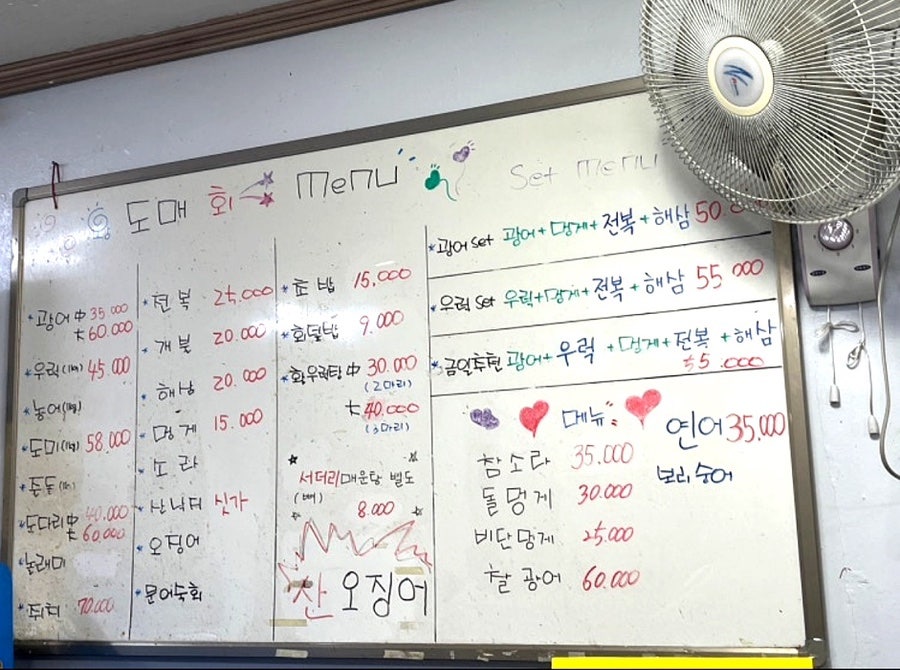 도매 회 Menu
Set Menu
*광어 中 35.000
大 60.000
*우럭(1kg) 45.000
*농어(1kg)
*도미(1kg) 58.000
*도다리 中 40.000
大 60.000
*놀래미
*쥐치 70.000
*전복 25,000
*개불 20.000
*해삼 20.000
*멍게 15.000
*소라
*산낙지 싯가
*오징어
*문어숙회
*초밥 15,000
*회덮밥 9.000
*활우럭탕 中 30.000
(2마리)
大 40.000
(3마리)
서더리매운탕 별도
(뼈)
8.000
찬 오징어
*광어 set 광어+멍게+전복+해삼 50.
*우럭 set 우럭+멍게+전복+해삼 55 000
*금일추천 광어+우럭+멍게+전복+해삼
55.000
메뉴
참소라 35.000
돌멍게 30.000
비단멍게 25.000
찰광어 60.000
연어 35.000
보리숭어